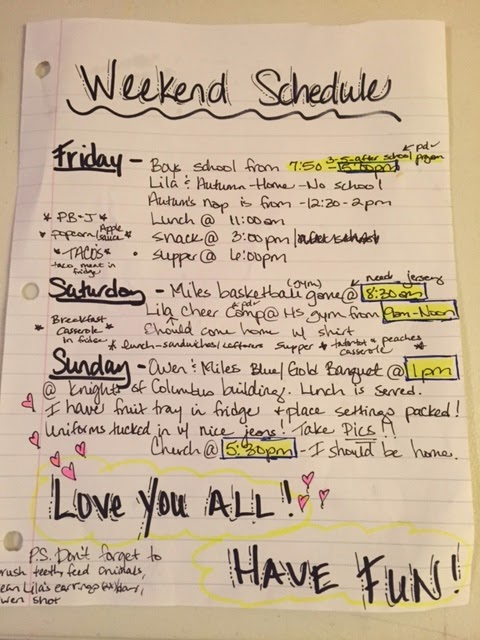 Weekend Schedule
pd.
Friday - Boys school from 7:50 - 5:00pm 3-5-after school program
Lila & Autumn - Home - No school
Autum's nap is from - 12:30 - 2pm
* PB+J * Lunch @ 11:00am
* popcorn/Apple sauce * Snack @ 3:00pm
* TACO's * Supper @ 6:00pm
taco meat in fridge
Saturday - Miles basketball (gym) game @ 8:30am need jersey
Lila Cheer Comp @ HS gym from 9am - Noon
pd.
* Breakfast casserole in fridge * Should come home w/ shirt
* lunch - sandwiches/leftovers Supper * tatertot casserole + peaches *
Sunday - Owen & Miles Blue/Gold Banquet @ 1pm
@ Knights of Columbus building. Lunch is served.
I have fruit tray in fridge + place settings packed!
Uniforms tucked in w/ nice jeans! Take Pics!!
Church @ 5:30pm - I should be home.
LOVE YOU ALL!
HAVE FUN!
P.S. Don't forget to
rush teeth, feed animals,
ean Lila's earrings
wen shot